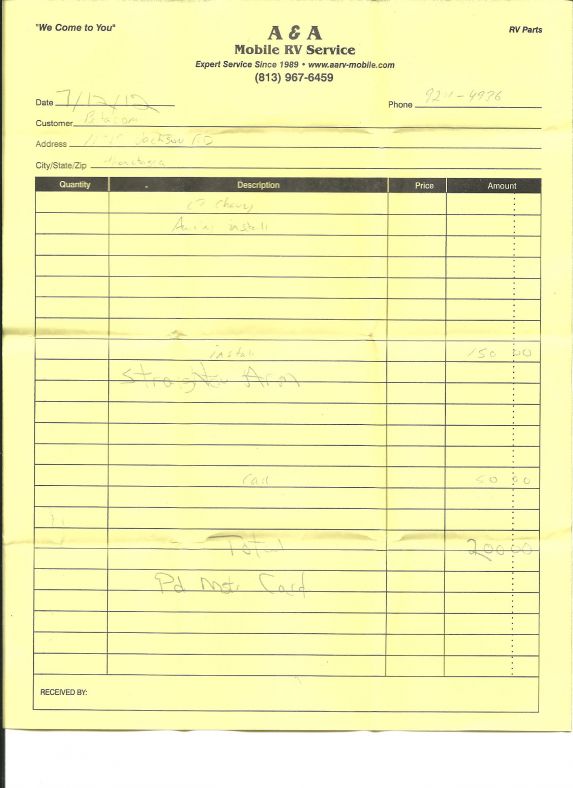 "We Come to You"
A & A
RV Parts
Mobile RV Service
Expert Service Since 1989 • www.aarv-mobile.com
(813) 967-6459
Date 7/12/12
Phone
Customer
Address Jackson
City/State/Zip
Quantity Description Price Amount
Chevy
install
install 150 00
Arm
Call 50 00
Total 200 00
Pd Mstr Card
RECEIVED BY: